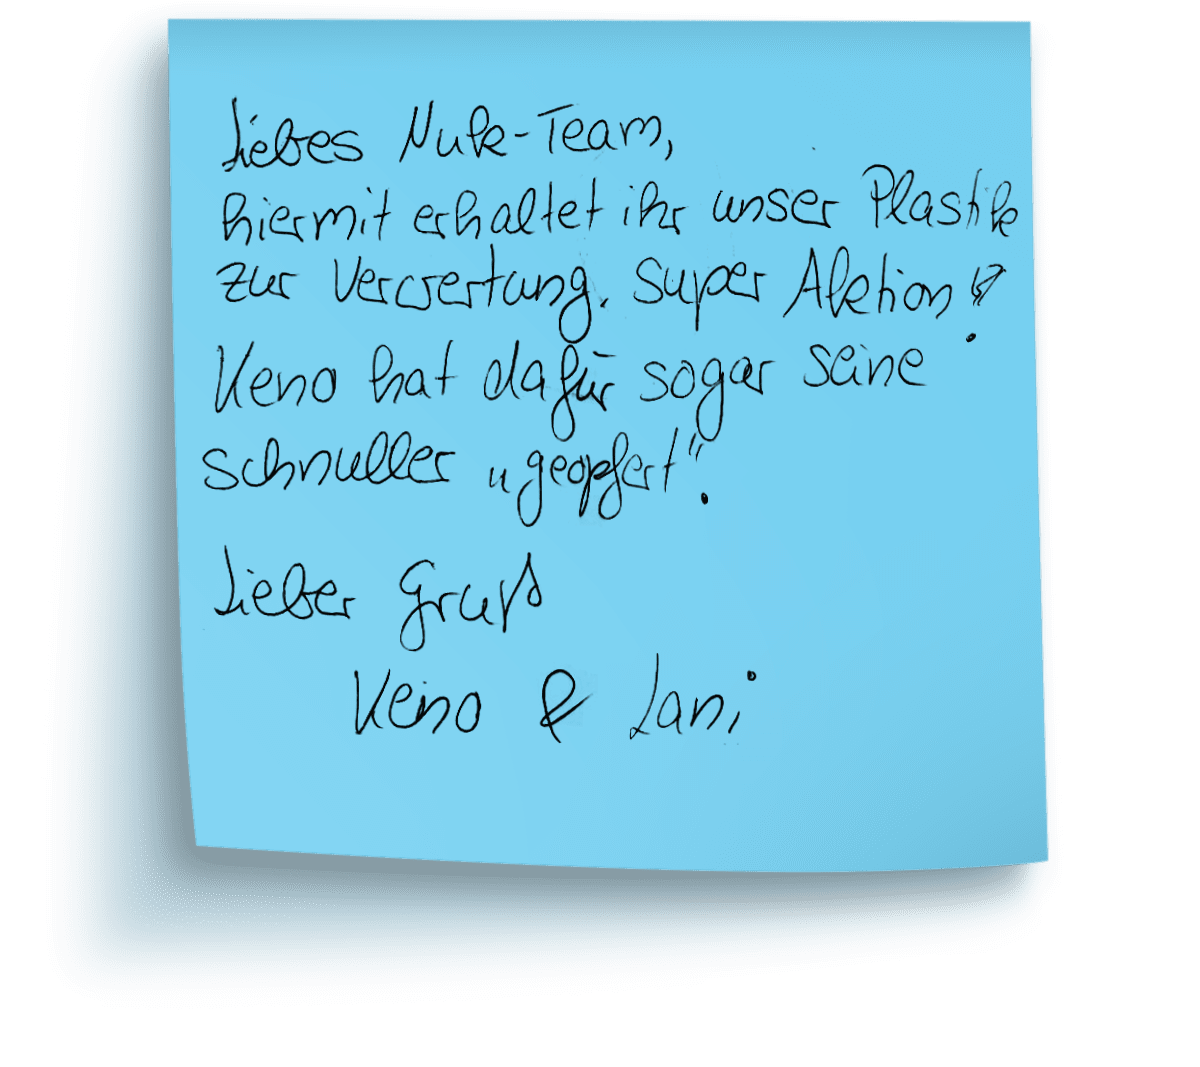 Liebes Nuk-Team,
hiermit erhaltet ihr unser Plastik
zur Verwertung. Super Aktion!
Keno hat dafür sogar seine
Schnuller „geopfert“.
Lieber Gruß
Keno & Jani